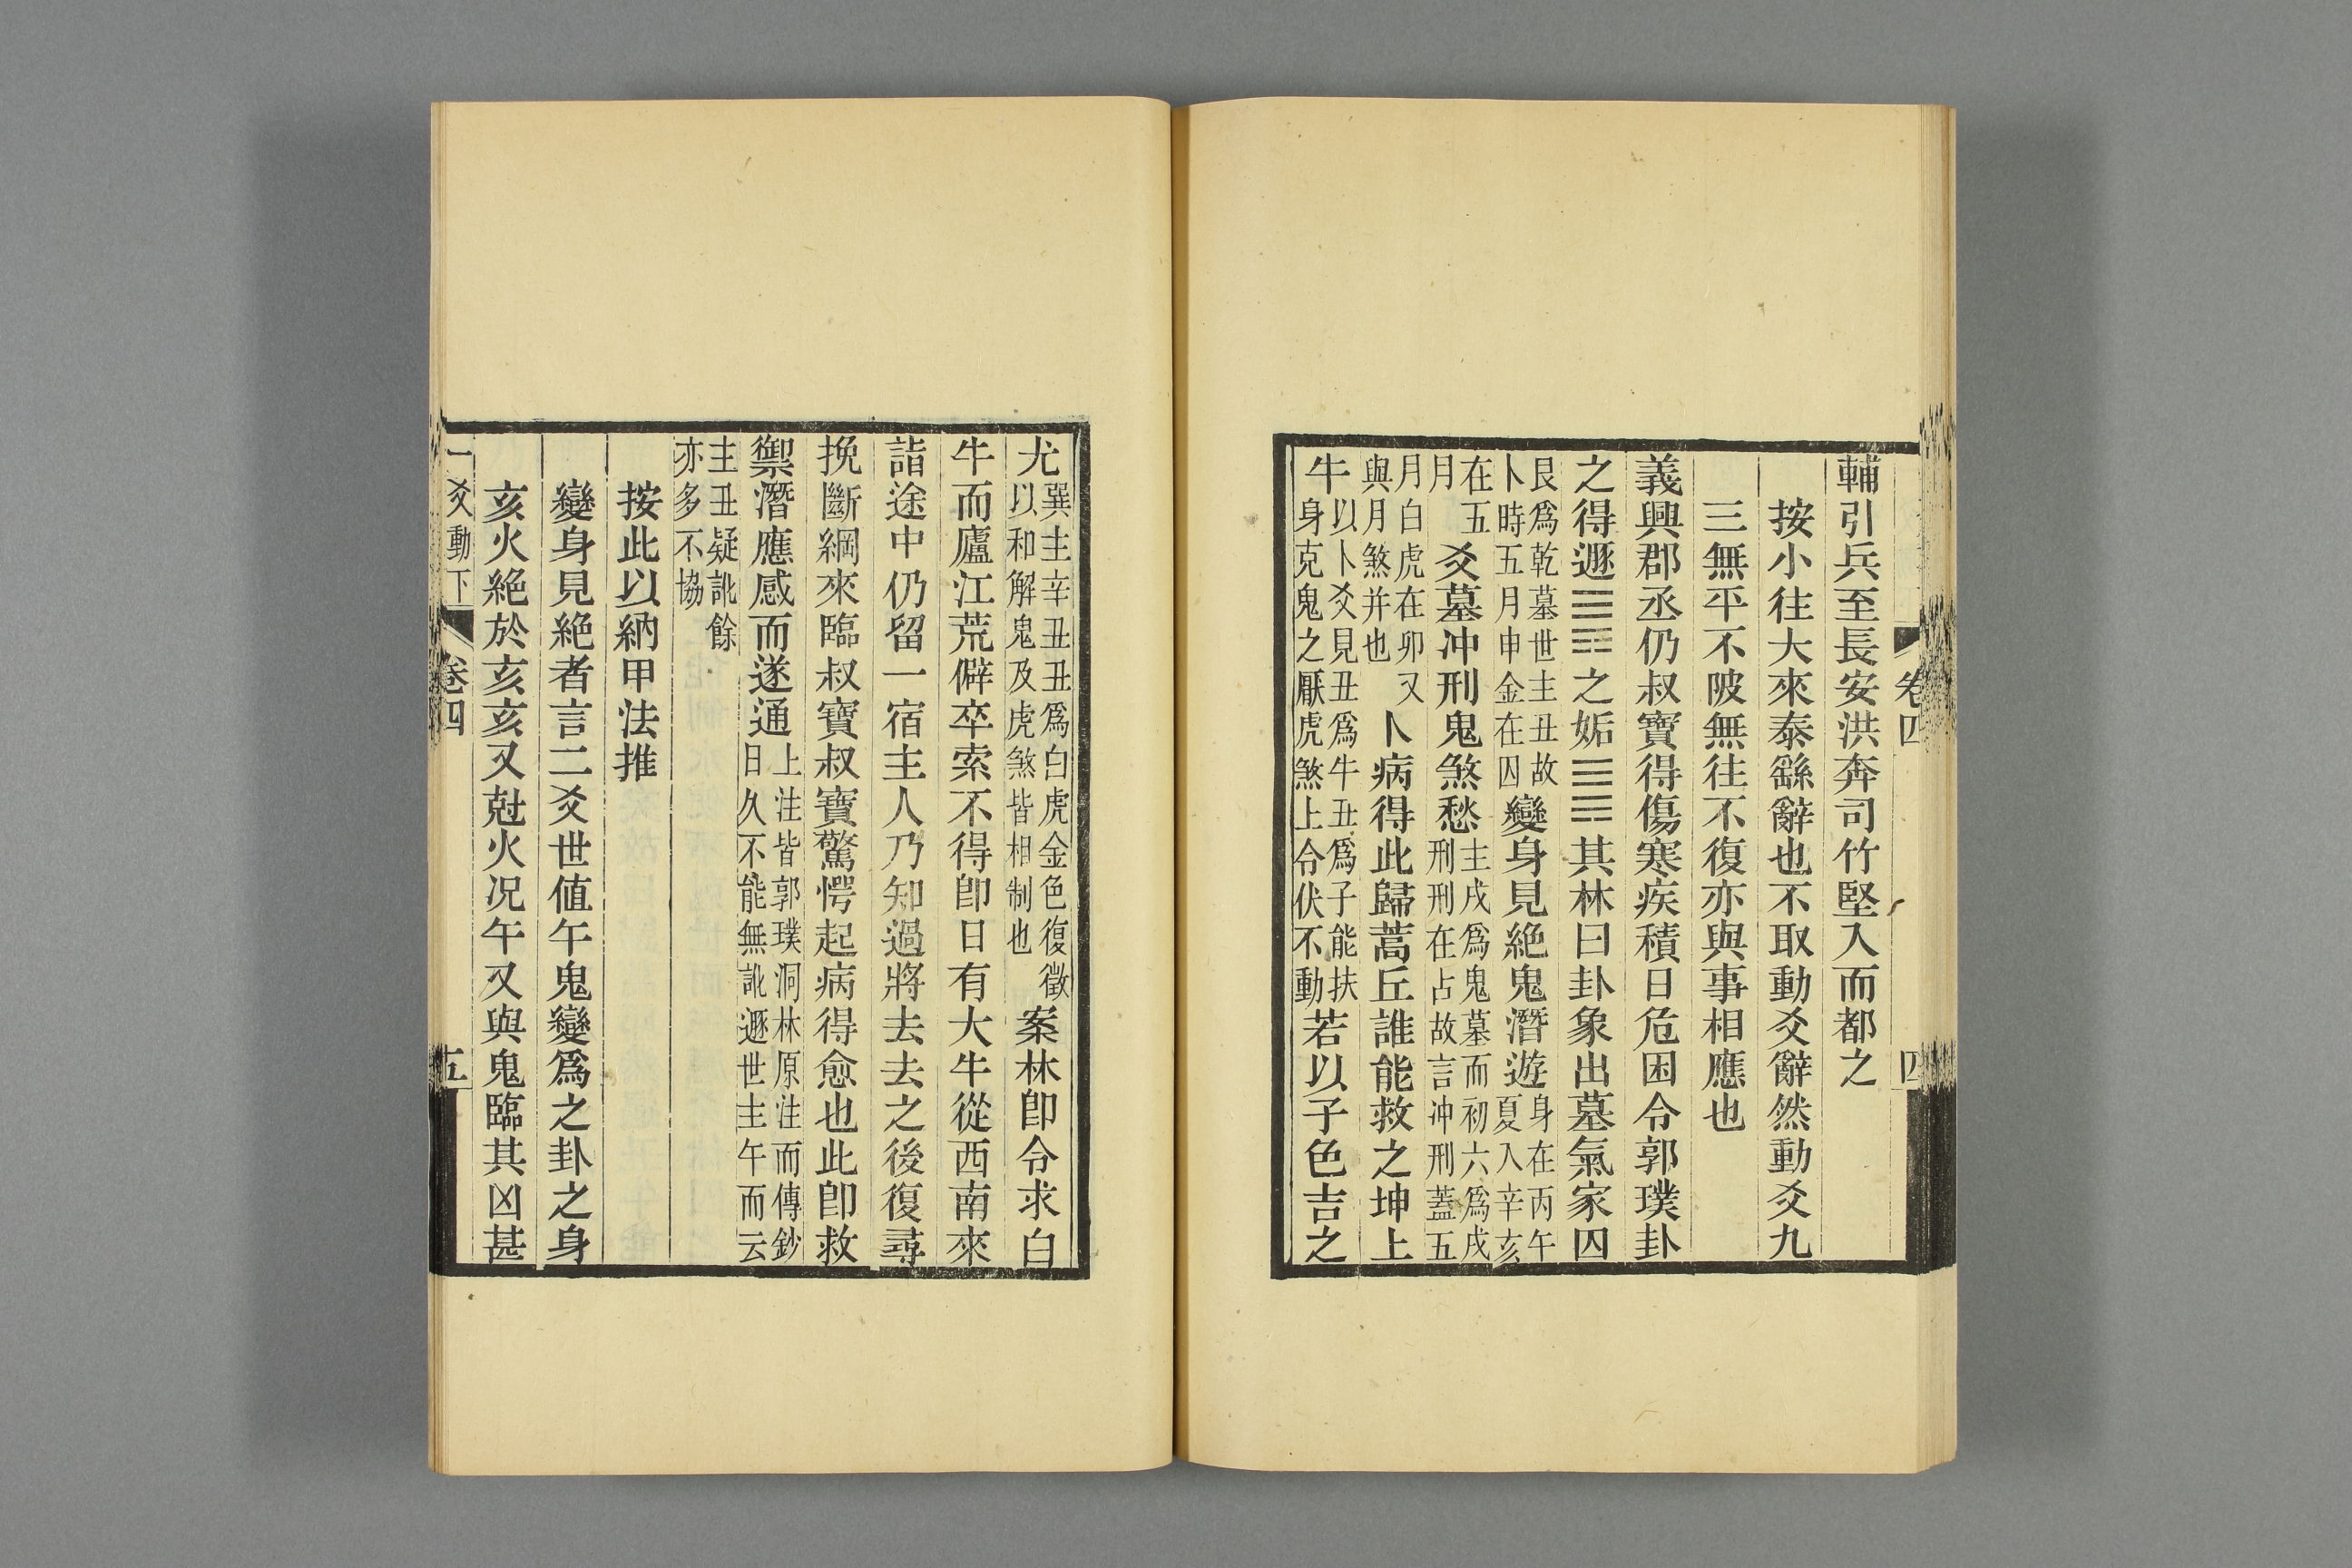 卷四
四
輔引兵至長安洪奔司竹堅入而都之
按小往大來泰繇辭也不取動爻辭然動爻九
三無平不陂無往不復亦與事相應也
義興郡丞仍叔寶得傷寒疾積日危困令郭璞卦
之得遯䷠之姤䷫其林曰卦象出墓氣家囚
艮爲乾墓世主丑故
卜時五月申金在囚
變身見絶鬼潛遊
身在丙午
夏入辛亥
在五
月
爻墓冲刑鬼煞愁
主戌爲鬼墓而初六爲戌
刑刑在占故言冲刑蓋五
月白虎在卯又
與月煞并也
卜病得此歸蒿丘誰能救之坤上
牛
以卜爻見丑爲牛丑爲子能扶
身克鬼之厭虎煞上令伏不動
若以子色吉之
尤
巽主辛丑丑爲白虎金色復徵
以和解鬼及虎煞皆相制也
案林卽令求白
牛而廬江荒僻卒索不得卽日有大牛從西南來
詣途中仍留一宿主人乃知過將去去之後復尋
挽斷綱來臨叔寶叔寶驚愕起病得愈也此卽救
禦潛應感而遂通
上注皆郭璞洞林原注而傳鈔
日久不能無訛遯世主午而云
主丑疑訛餘
亦多不協
按此以納甲法推
變身見絶者言二爻世值午鬼變爲之卦之身
亥火絶於亥亥又尅火况午又與鬼臨其凶甚
一爻動下
卷四
五